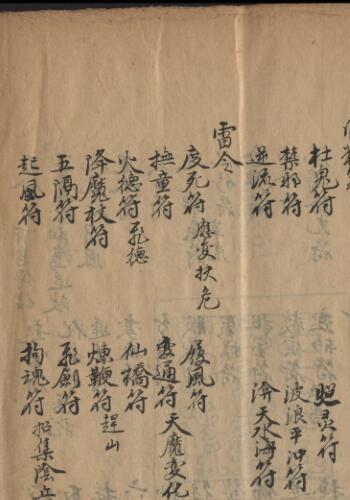 杜鬼符 照灵符
禁邪符 波浪平沖符
逆流符 済天水海符
雷令
度死符 應变扶危 履風符
撫童符 变通符 天魔变化
火德符 飛德 仙橋符
降魔杖符 煉鞭符 趕山
五隔符 飛劍符
起風符 拘魂符 招集陰